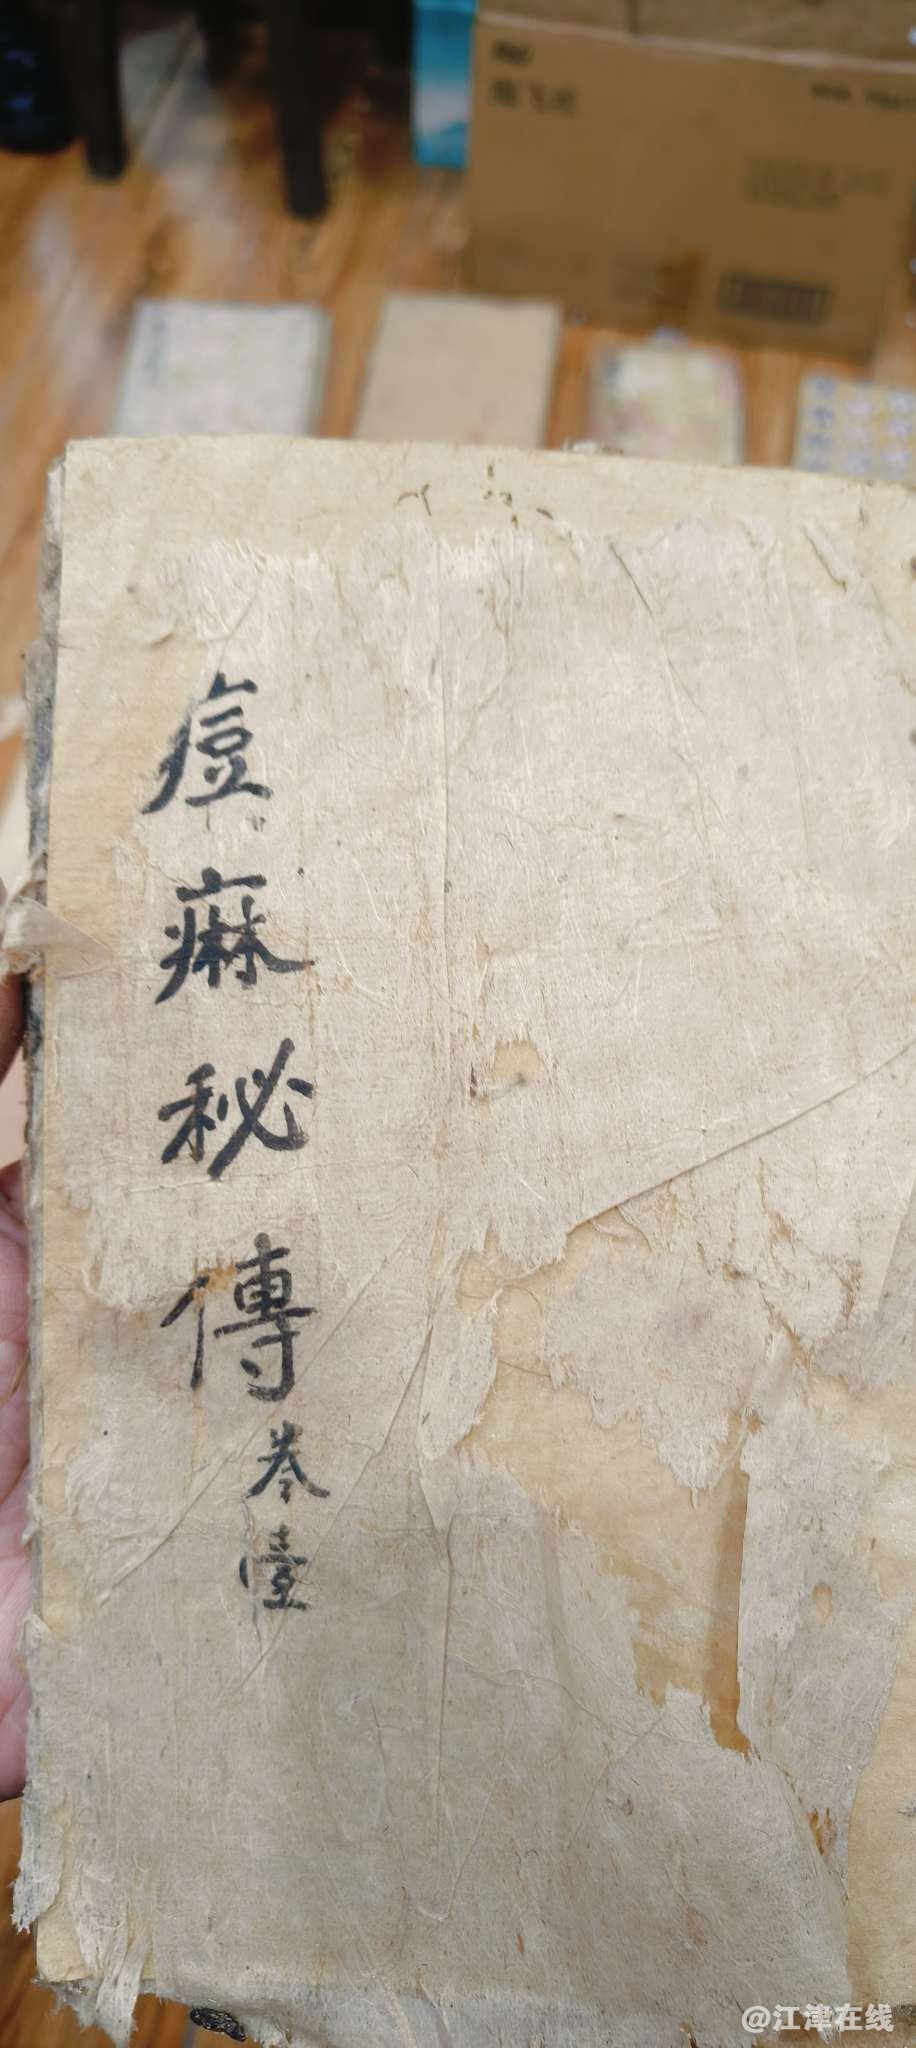 痘痳秘傳
卷壹
@江津在线